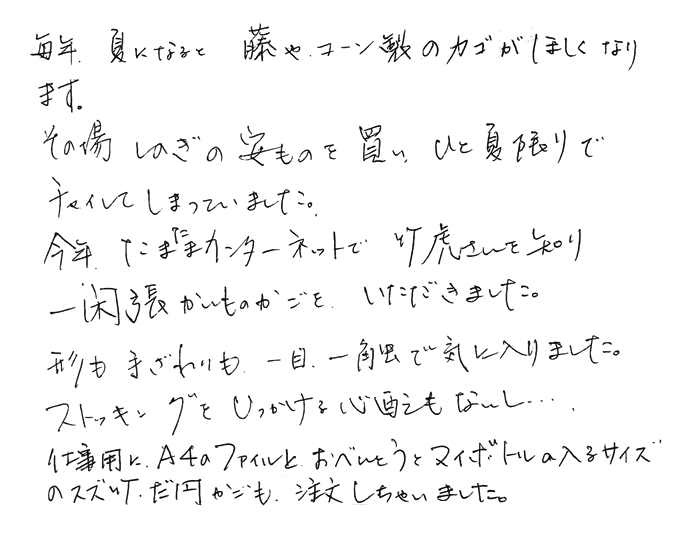 毎年、夏になると 籐や、コーン製のカゴがほしくなり
ます。
その場しのぎの安ものを買い、ひと夏限りで
チャイしてしまっていました。
今年、たまたまインターネットで 竹虎さんを知り
一閑張かいものかごを、いただきました。
形も手ざわりも、一目、一触で気に入りました。
ストッキングをひっかける心配もないし….
仕事用に、A4のファイルと、おべんとうとマイボトルの入るサイズ
のスズ竹、だ円かごも、注文しちゃいました。